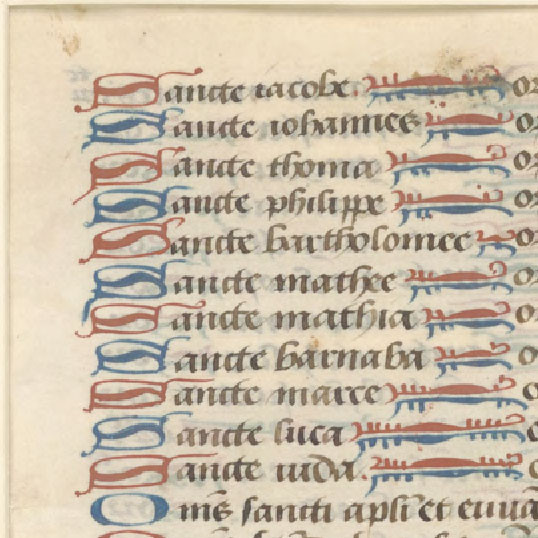 Sancte iacobe or
Sancte iohannes or
Sancte thoma or
Sancte philippe or
Sancte bartholomee or
Sancte mathee or
Sancte mathia o
Sancte barnaba o
Sancte marce o
Sancte luca o
Sancte iuda o
Om̄s sancti apl̄i et euuā